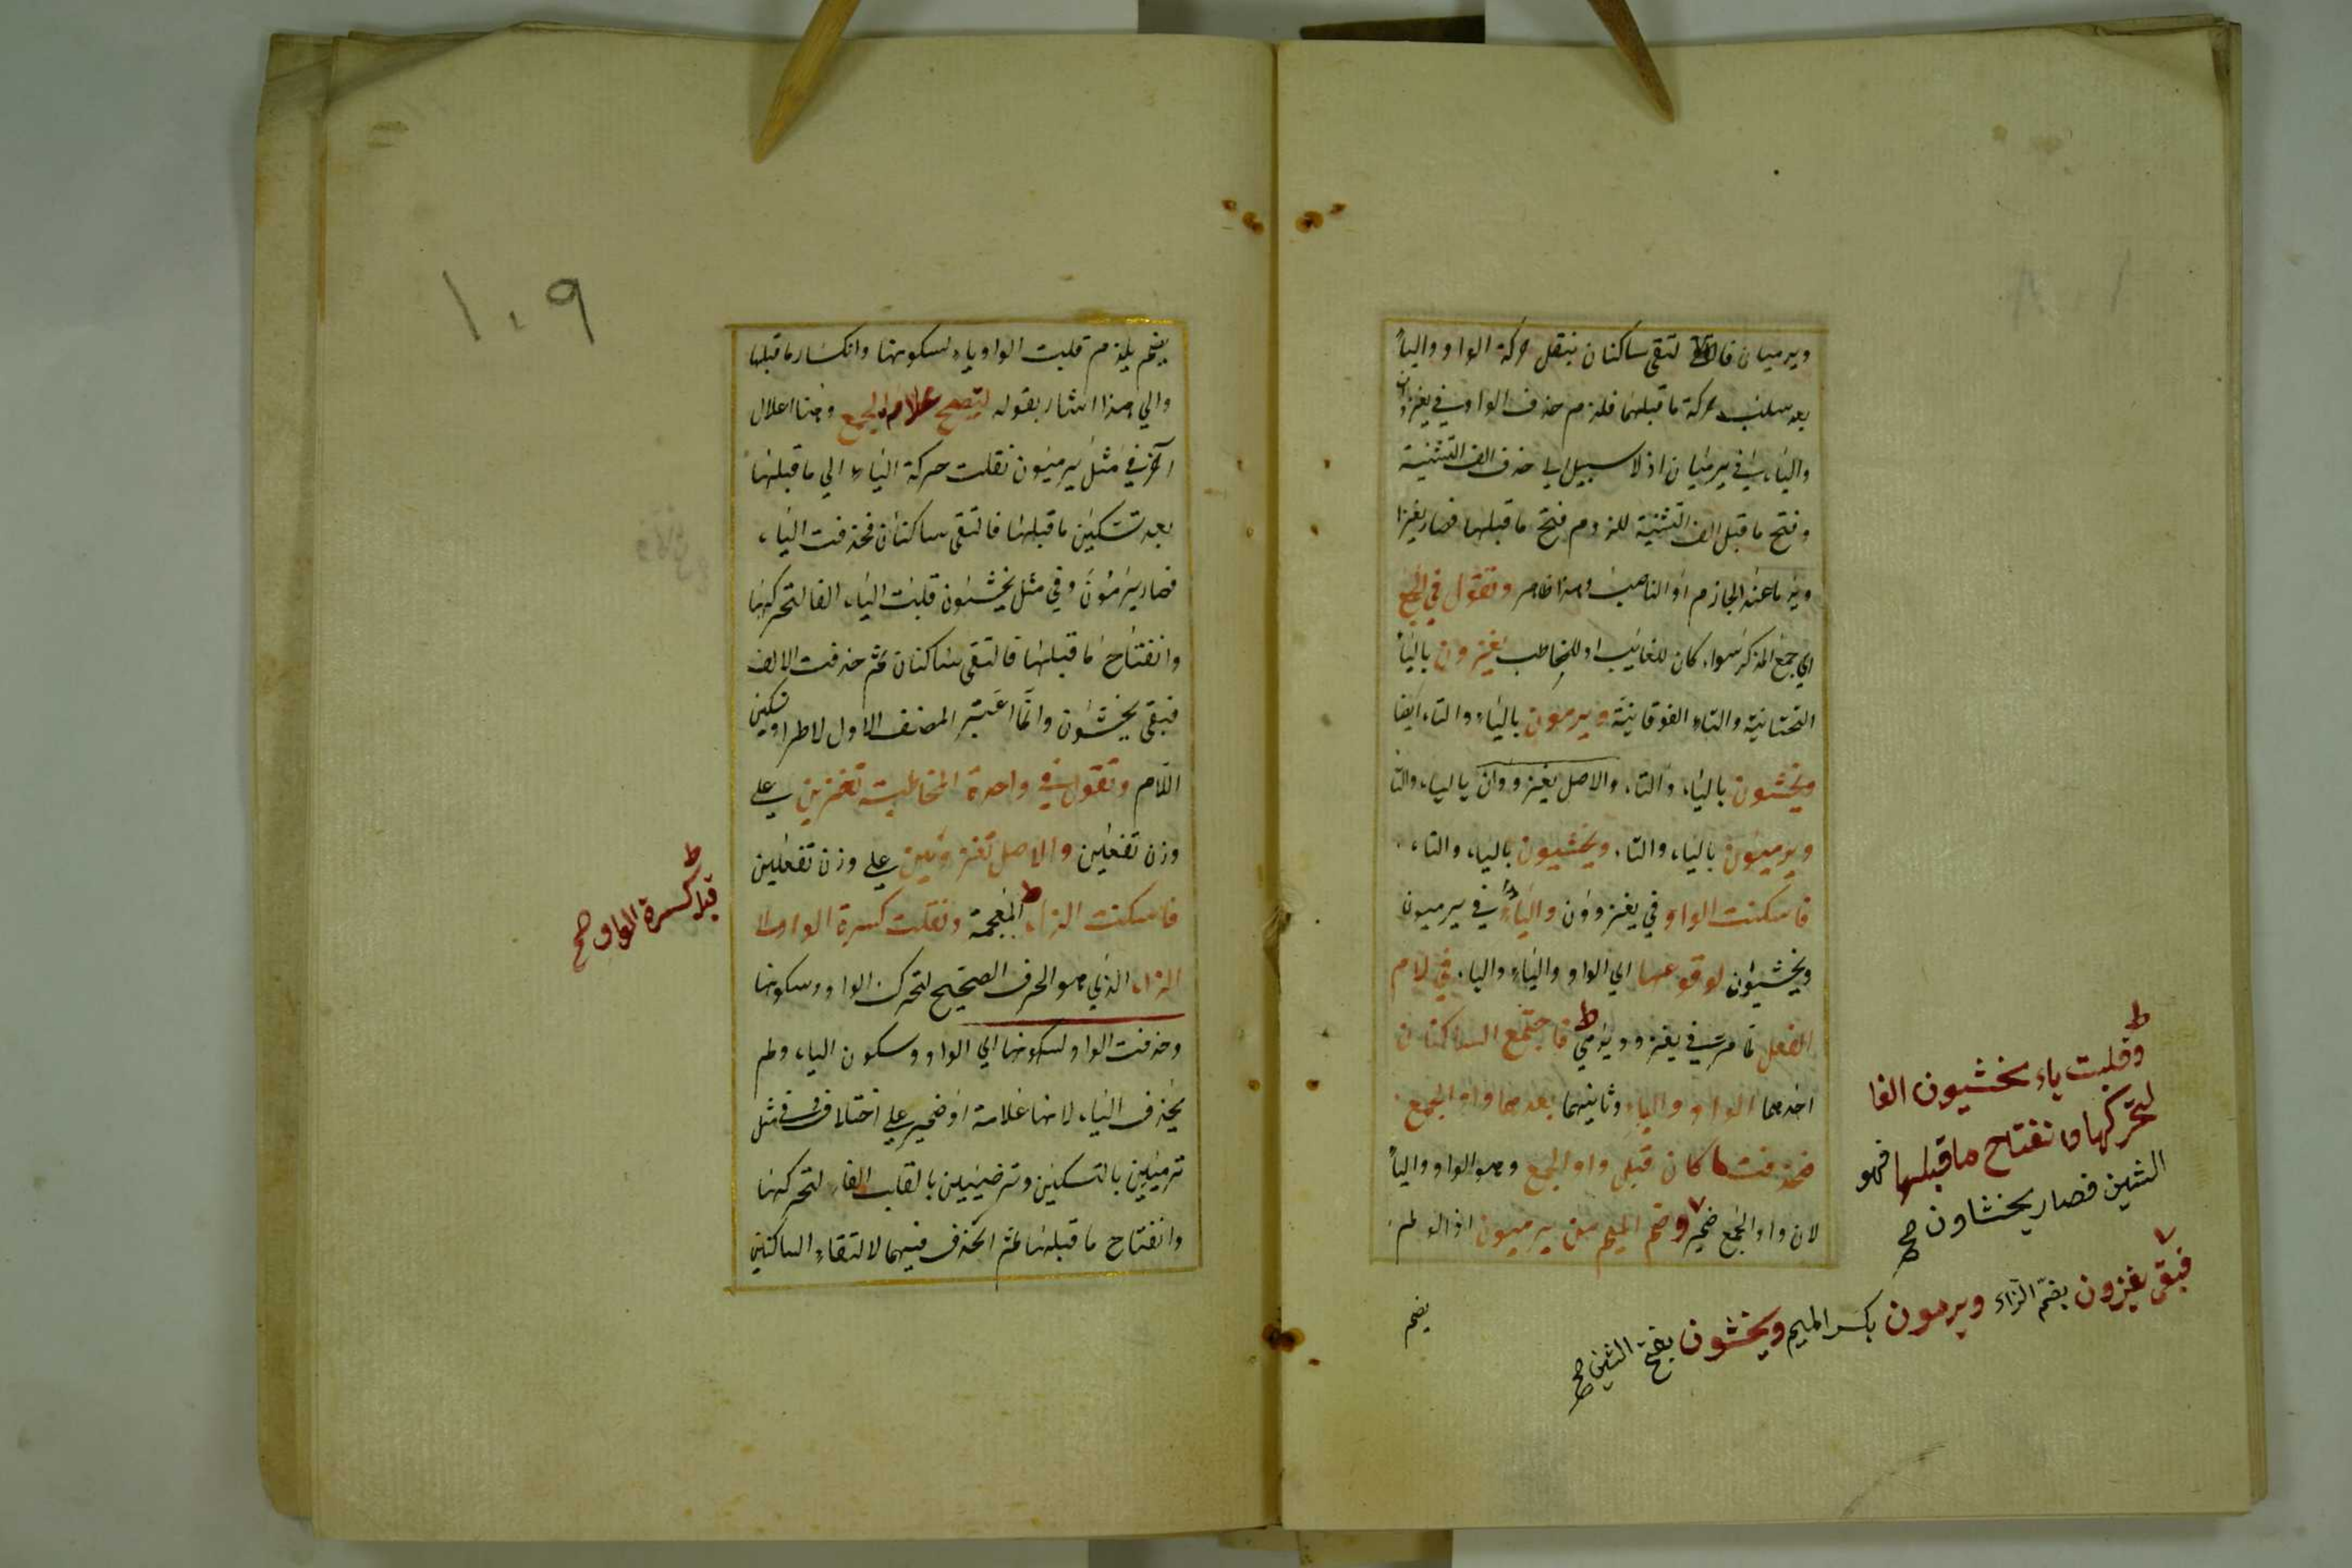 ويرميان فالتقى ساكنان بنقل حركة الواو والياء
بعد سلب حركة ما قبلهما فلزم حذف الواو في يغزوان
والياء في يرميان اذ لا سبيل الي حذف الف التثنية
وفتح ما قبل الف التثنية للزوم فتح ما قبلها فصار يغزا
ويرما عند الجازم او الناصب وهذا ظاهر وتقول في الجمع
اي جمع المذكر سواء كان للغائب او للمخاطب يغزون بالياء
التحتانية والتاء الفوقانية ويرمون بالياء والتاء ايضا
ويخشون بالياء والتاء والاصل يغزوون بالياء والتا
ويرميون بالياء والتاء ويخشيون بالياء والتاء
فاسكنت الواو في يغزوون والياء في يرميون
ويخشيون لوقوعها اي الواو والياء والياء في لام
الفعل كما مر في يغزو ويرمي فاجتمع الساكنان
احدهما الواو والياء وثانيهما بعدهما واو الجمع
فحذفت ما كان قبل واو الجمع وهو الواو والياء
لان واو الجمع ضمير وضم الميم من يرميون اذ لو لم
يضم
وقلبت ياء يخشيون الفا
لتحركها وانفتاح ما قبلها فهو
الشين فصار يخشاون صح
فبقي يغزون بضم الزاء ويرمون بكسر الميم ويخشون بفتح الشين صح
١٠٩
يضم يلزم قلبت الواو ياء لسكونها وانكسار ما قبلها
والي هذا اشار بقوله لتصح علامة الجمع وهنا اعلال
آخر في مثل يرميون نقلت حركة الياء الي ما قبلها
بعد تسكين ما قبلها فالتقى ساكنان فحذفت الياء
فصار يرمون وفي مثل يخشيون قلبت الياء الفا لتحركها
وانفتاح ما قبلها فالتقى ساكنان ثم حذفت الالف
فبقي يخشون وانما اعتبر المصنف الاول لاطراد تسكين
اللام وتقول في واحدة المخاطبة تغزين علي
وزن تفعين والاصل تغزوين علي وزن تفعلين
فاسكنت الزاء المعجمة ونقلت كسرة الواو الي
الزاء الذي هو الحرف الصحيح لتحرك الواو وسكونها
وحذفت الواو لسكونها اي الواو وسكون الياء ولم
يحذف الياء لانها علامة او ضمير علي اختلاف في مثل
ترميين بالتسكين وترضيين بالقلب الفا لتحركها
وانفتاح ما قبلها ثم الحذف فيهما لالتقاء الساكنين
قبل كسرة الواو صح